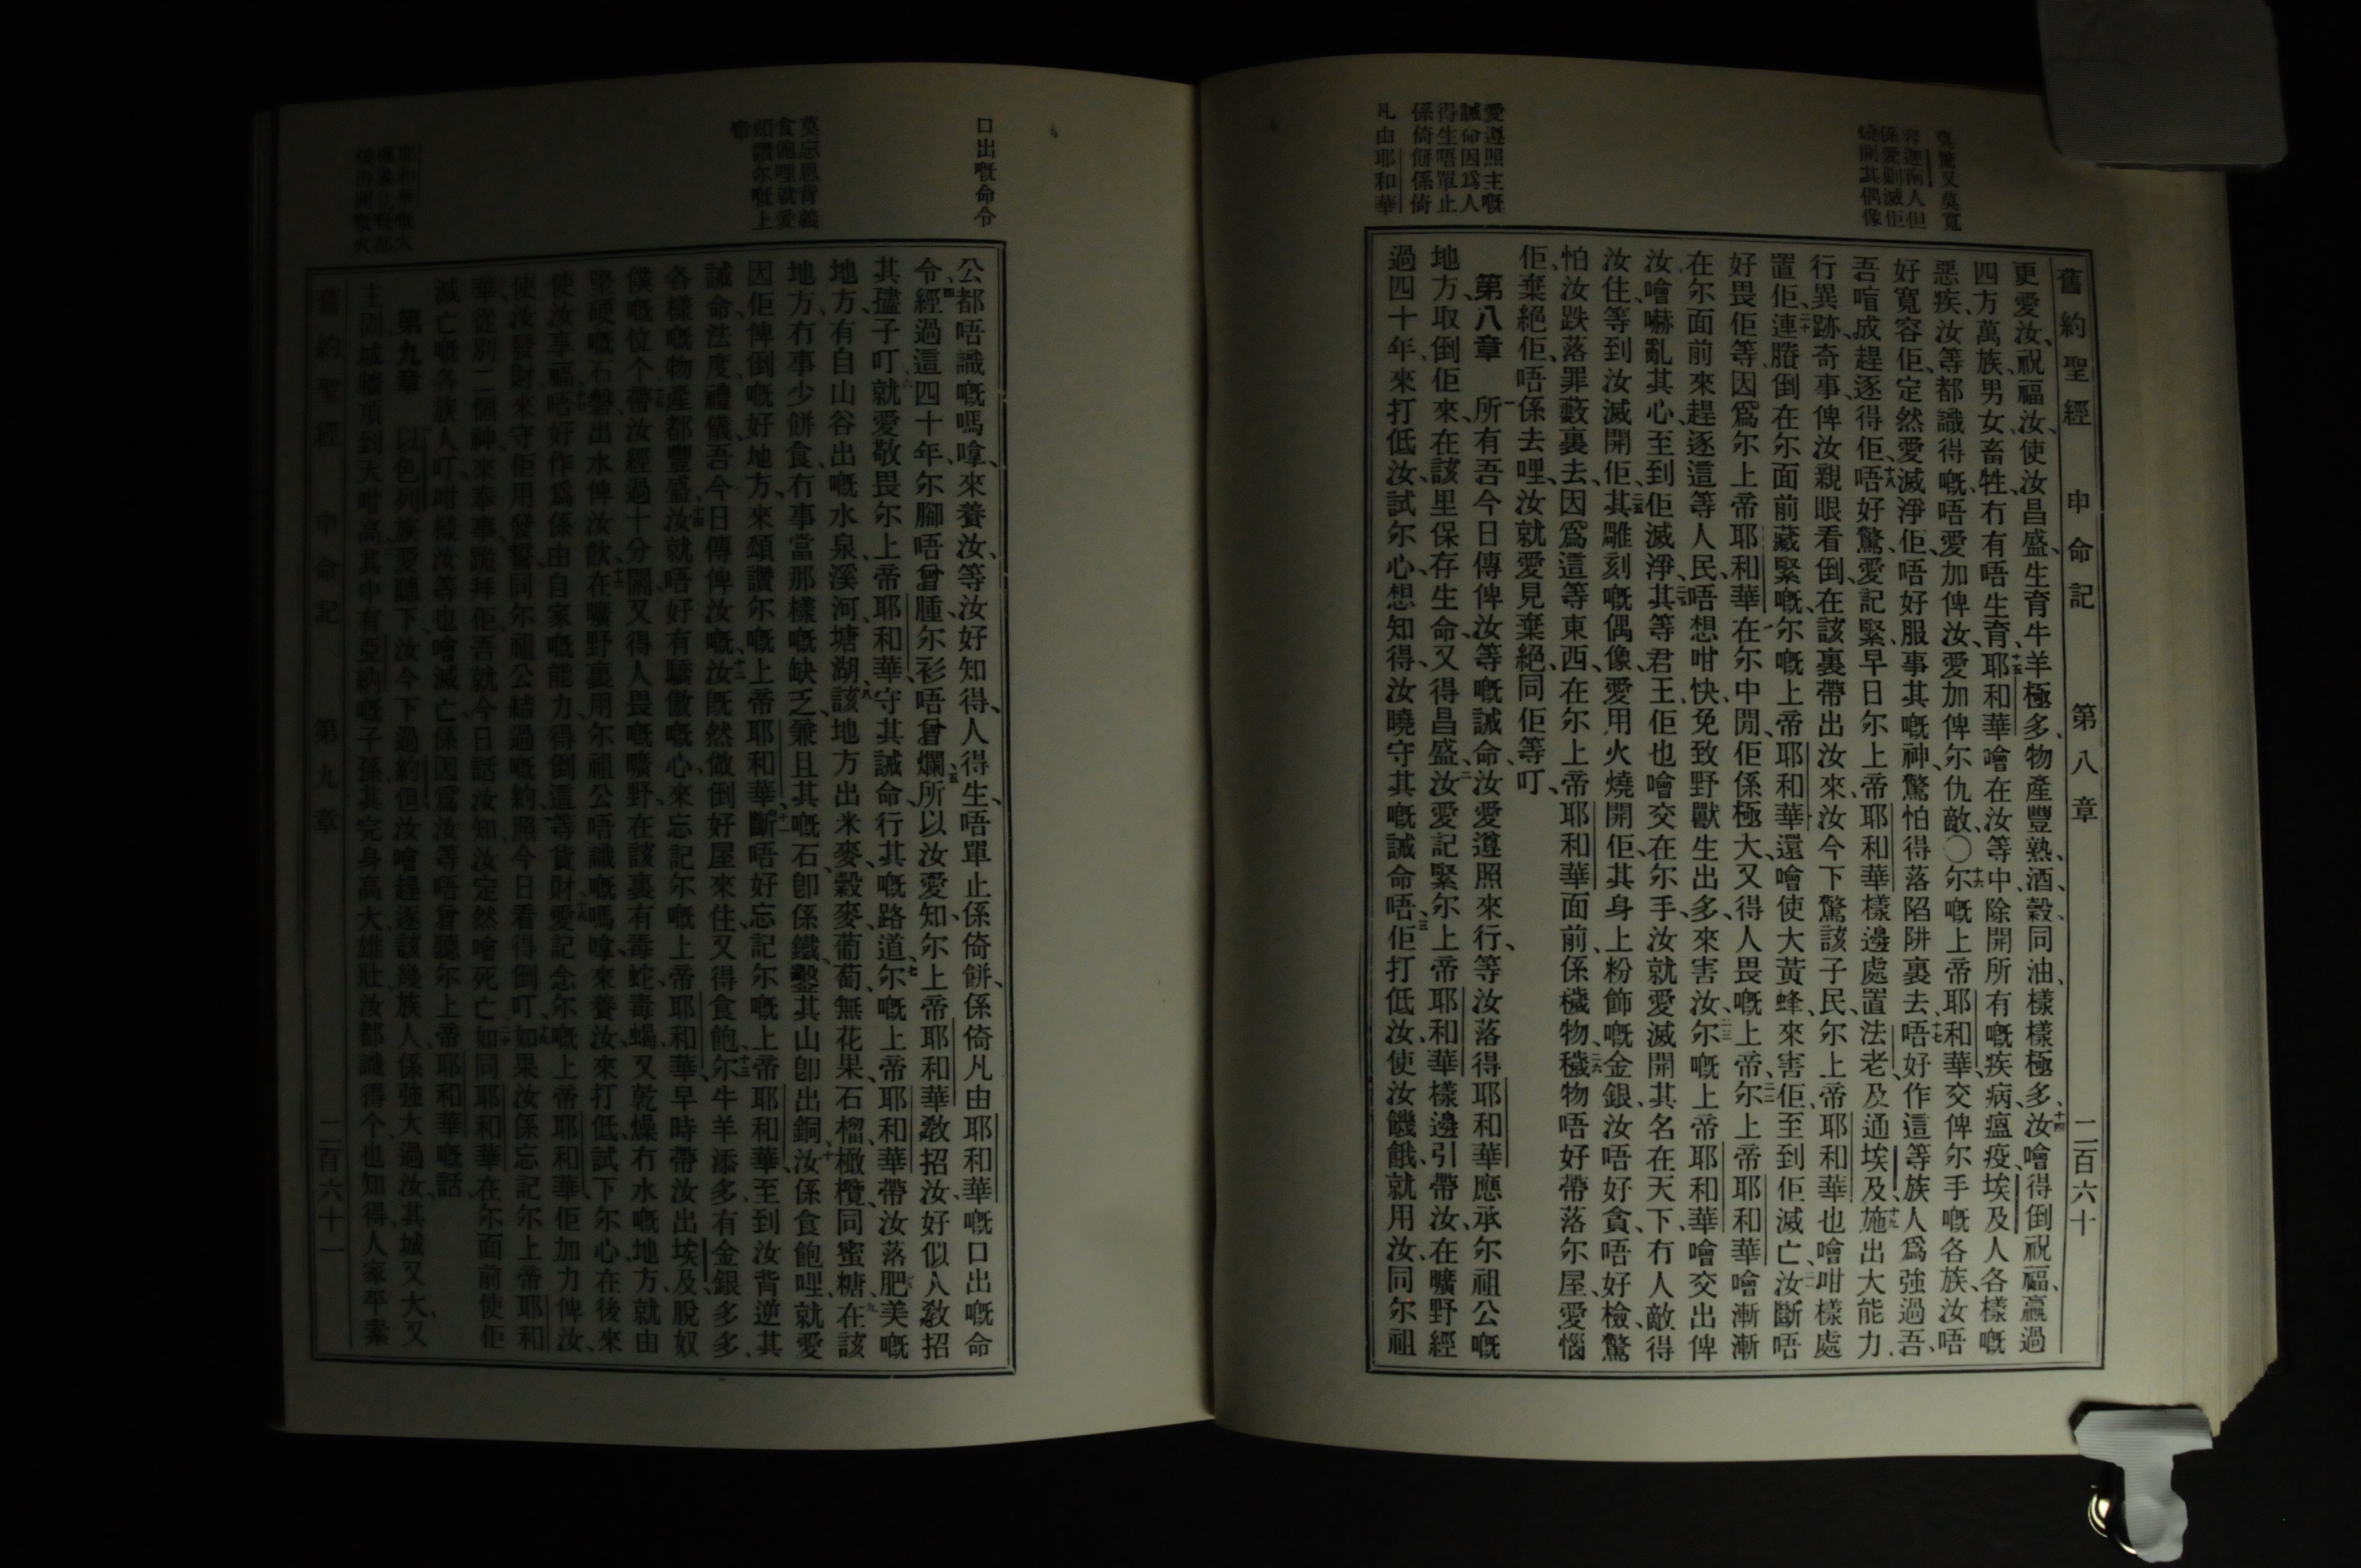 舊約聖經 申命記 第八章 二百六十
更愛汝、祝福汝、使汝昌盛、生育牛羊極多、物產豐熟、酒、穀、同油、樣樣極多、十四汝噲得倒祝福、贏過
四方萬族、男女畜牲、冇有唔生育、十五耶和華噲在汝等中、除開所有嘅疾病、瘟疫、埃及人各樣嘅
惡疾、汝等都識得嘅、唔愛加俾汝、愛加俾尔仇敵、〇十六尔嘅上帝耶和華、交俾尔手嘅各族、汝唔
好寬容佢、定然愛滅淨佢、唔好服事其嘅神、驚怕得落陷阱裏去、十七唔好作這等族人爲強過吾、
吾㖔成趕逐得佢、十八唔好驚、愛記緊早日尔上帝、耶和華樣邊處置法老、及通埃及、十九施出大能力、
行異跡、奇事、俾汝親眼看倒、在該裏帶出汝來、汝今下驚該子民、尔上帝耶和華也噲咁樣處
置佢、二十連謄倒在尔面前藏緊嘅、尔嘅上帝耶和華、還噲使大黃蜂、來害佢、至到佢滅亡、二一汝斷唔
好畏佢等、因爲尔上帝耶和華、在尔中間、佢係極大、又得人畏嘅上帝、二二尔上帝耶和華、噲漸漸
在尔面前來趕逐這等人民、唔想咁快、免致野獸生出多、來害汝、二三尔嘅上帝耶和華、噲交出俾
汝、噲嚇亂其心、至到佢滅淨、二四其等君王、佢也噲交在尔手、汝就愛滅開其名在天下、冇人敵得
汝住、等到汝滅開佢、二五其雕刻嘅偶像、愛用火燒開佢、其身上粉飾嘅金銀、汝唔好貪、唔好檢、驚
怕汝跌落罪藪裏去、因爲這等東西、在尔上帝耶和華面前、係穢物、二六穢物唔好帶落尔屋、愛惱
佢、棄絕佢、唔係去哩、汝就愛見棄絕、同佢等叮、
第八章 一所有吾今日傳俾汝等嘅誡命、汝愛遵照來行、等汝落得耶和華應承尔祖公嘅
地方、取倒佢來、在該里保存生命、又得昌盛、二汝愛記緊尔上帝耶和華樣邊引帶汝、在曠野經
過四十年、來打低汝、試尔心、想知得、汝曉守其嘅誡命唔、三佢打低汝、使汝饑餓、就用汝、同尔祖
容迦南人但
係愛剿滅佢
燒開其偶像
愛遵照主嘅
誡命因爲人
得生唔單止
係倚餅係倚
凡由耶和華
口出嘅命令
公都唔識嘅嗎嗱、來養汝、等汝好知得、人得生、唔單止係倚餅、係倚凡由耶和華嘅口出嘅命
令、四經過這四十年、尔腳唔曾腫、尔衫唔曾爛、五所以汝愛知、尔上帝耶和華、敎招汝、好似人敎招
其㜺子叮、六就愛敬畏尔上帝耶和華、守其誡命、行其嘅路道、七尔嘅上帝耶和華、帶汝落肥美嘅
地方、有自山谷出嘅水泉、溪河、塘湖、八該地方出米麥、穀麥、葡萄、無花果、石榴、橄欖、同蜜糖、九在該
地方、冇事少餅食、冇事當那樣嘅缺乏、兼且其嘅石、卽係鐵、鑿其山卽出銅、十汝係食飽哩、就愛
因佢俾倒嘅好地方、來頌讚尔嘅上帝耶和華、十一斷唔好忘記尔嘅上帝、耶和華、至到汝背逆其
誡命、法度、禮儀、吾今日傳俾汝嘅、十二汝旣然做倒好屋來住、又得食飽、十三尔牛羊添多、有金銀多多、
各樣嘅物產都豐盛、十四汝就唔好有驕傲嘅心、來忘記尔嘅上帝耶和華、早時帶汝出埃及、脫奴
僕嘅位个、十五帶汝經過十分闊、又得人畏嘅曠野、在該裏有毒蛇、毒蝎、又乾燥冇水嘅地方、就由
堅硬嘅石磐出水俾汝飲、十六在曠野裏用尔祖公唔識嘅嗎嗱、來養汝、來打低、試下尔心、在後來
使汝享福、十七唔好作爲係由自家嘅能力、得倒這等貨財、十八愛記念尔嘅上帝耶和華、佢加力俾汝、
使汝發財、來守佢用發誓同尔祖公結過嘅約、照今日看得倒叮、十九如果汝係忘記尔上帝耶和
華、從別二個神、來奉事、跪拜佢、吾就今日話汝知、汝定然噲死亡、二十如同耶和華在尔面前使佢
滅亡嘅各族人叮、咁樣汝等也噲滅亡、係因爲汝等唔曾聽尔上帝耶和華嘅話、
第九章 一以色列族愛聽下、汝今下過約但、汝噲趕逐該幾族人、係強大過汝、其城又大、又
固城牆頂到天咁高、二其中有亞納嘅子孫、其完身高大、雄壯、汝都識得个、也知得、人家平素
舊約聖經 申命記 第九章 二百六十一
莫忘恩背義
食飽哩就愛
頌讚尔嘅上
帝